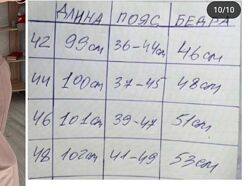 10/10
ДЛИНА ПОЯС БЕДРА
42 99см 36-44см 46см
44 100см 37-45 48см
46 101см 39-47 51см
48 102см 41-49 53см